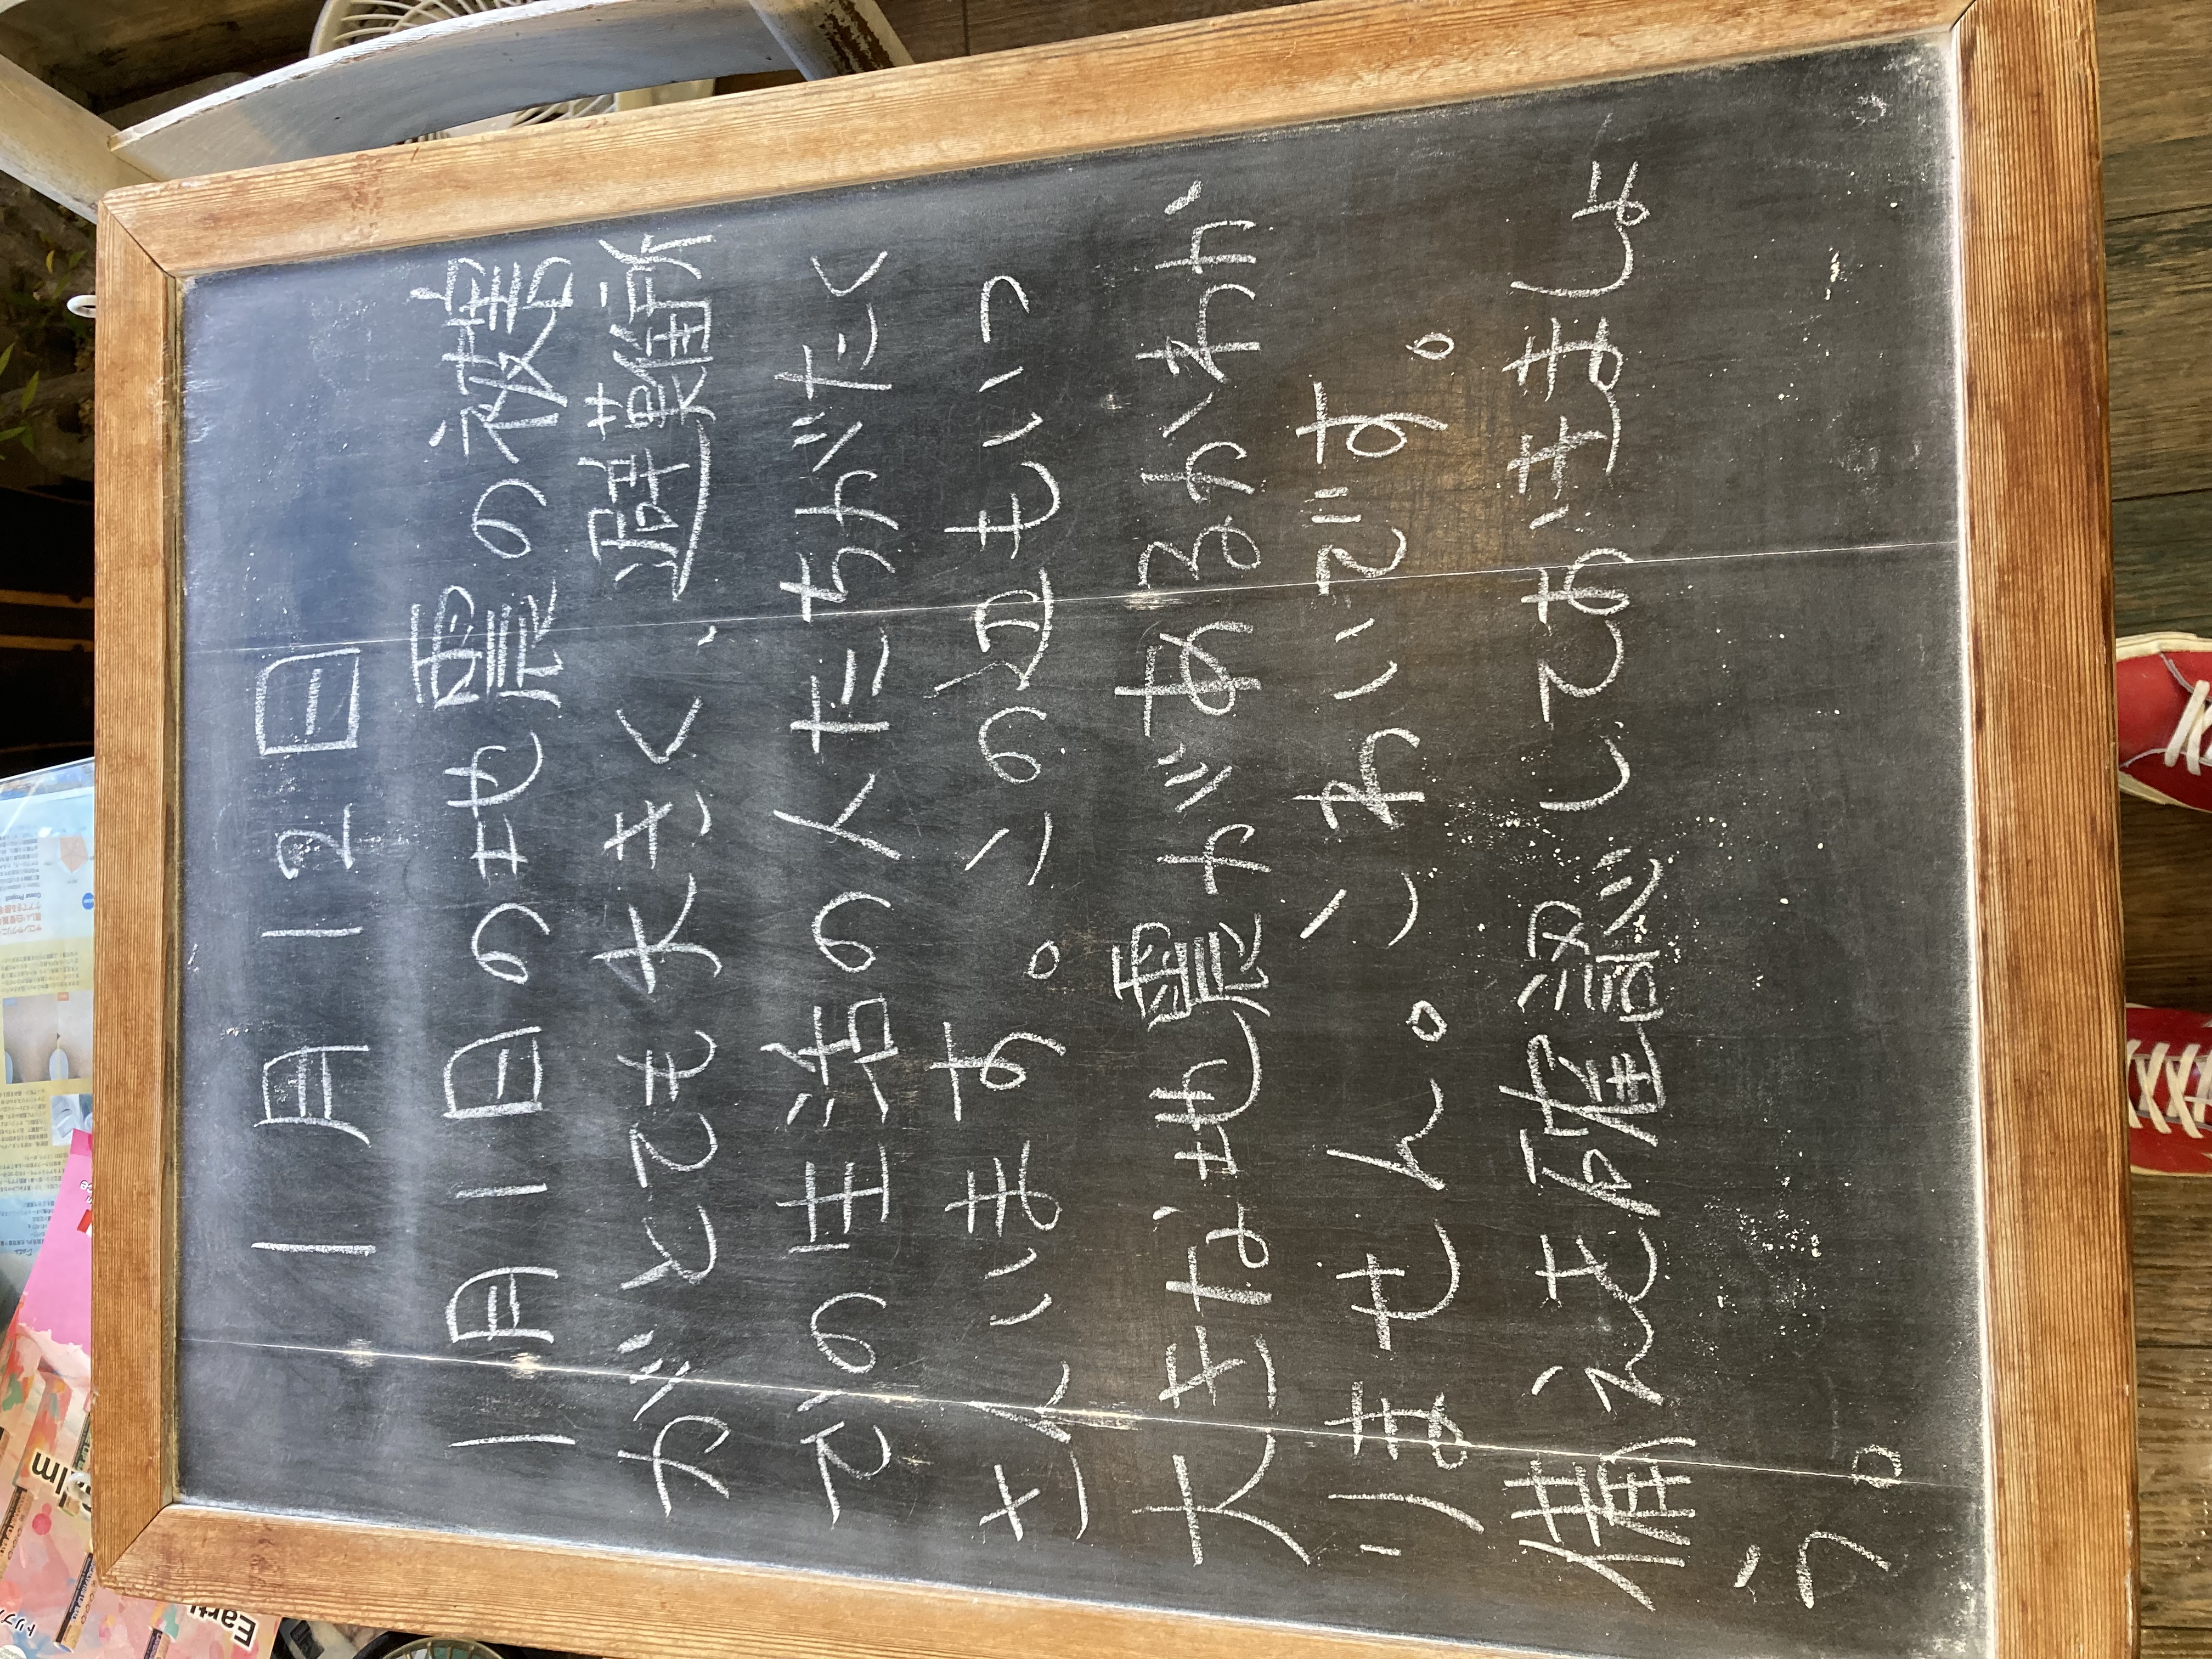 1月12日
1月1日の地震の被害
がとても大きく、避難所
での生活の人たちがたく
さんいます。この辺もいつ
大きな地震があるかわか
りません。こわいです。
備えを確認しておきましょ
う。